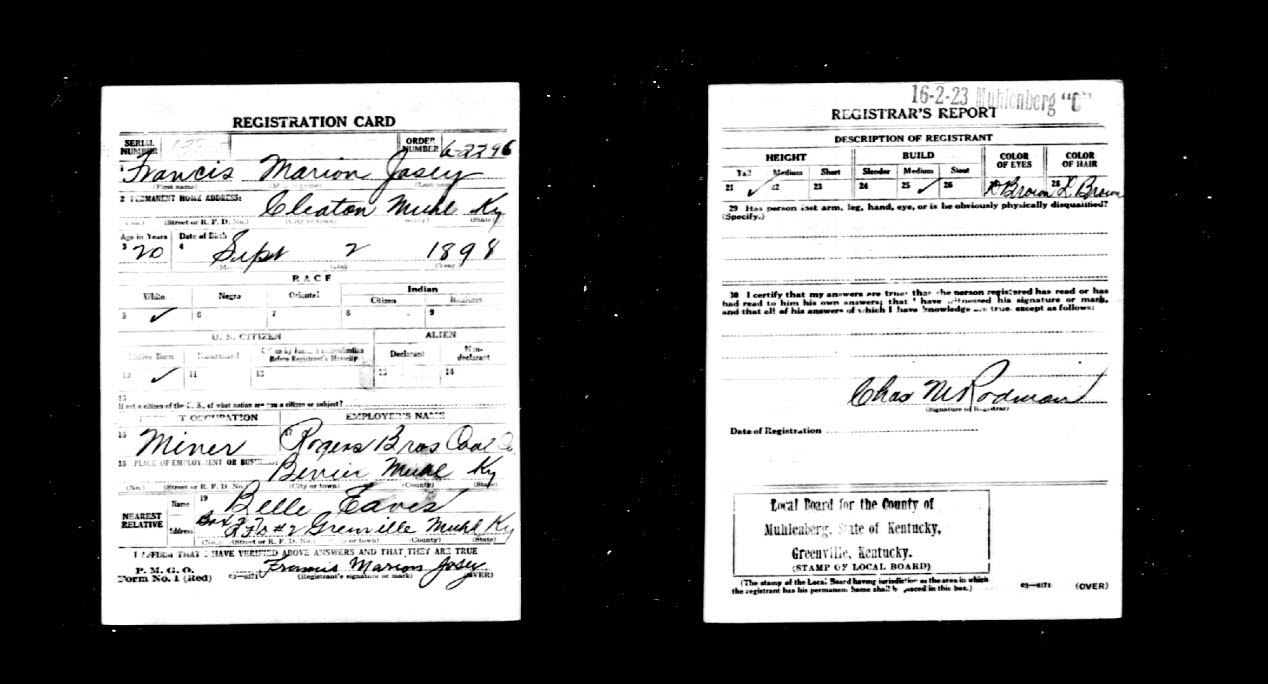 REGISTRATION CARD
SERIAL NUMBER ORDER NUMBER 6-2296
1 Francis Marion Josey
(First name) (Middle name) (Last name)
2 PERMANENT HOME ADDRESS: Cleaton Muhl Ky
(No.) (Street or R. F. D. No.) (City or town) (County) (State)
Age in Years Date of Birth
3 20 4 Sept 2 1898
(Month) (Day) (Year)
RACE
White Negro Oriental Indian
Citizen Noncitizen
5 ✓ 6 7 8 9
U. S. CITIZEN ALIEN
Native Born Naturalized Citizen by Father's Naturalization Before Registrant's Majority Declarant Non-declarant
10 ✓ 11 12 13 14
15
If not a citizen of the U. S., of what nation are you a citizen or subject?
T OCCUPATION EMPLOYER'S NAME
16 Miner 17 Rogers Bros Coal Co
18 PLACE OF EMPLOYMENT OR BUSINESS: Bevier Muhl Ky
(No.) (Street or R. F. D. No.) (City or town) (County) (State)
NEAREST RELATIVE Name 19 Belle Eaves
Address Box #2 Grenville Muhl Ky
(No.) (Street or R. F. D. No.) (City or town) (County) (State)
I AFFIRM THAT I HAVE VERIFIED ABOVE ANSWERS AND THAT THEY ARE TRUE
P. M. G. O.
Form No. 1 (Red) 03—6171 Francis Marion Josey
(Registrant's signature or mark) (OVER)
16-2-23 Muhlenberg "C"
REGISTRAR'S REPORT
DESCRIPTION OF REGISTRANT
HEIGHT BUILD COLOR OF EYES COLOR OF HAIR
Tall Medium Short Slender Medium Stout
21 ✓ 22 23 24 25 ✓ 26 D Brown 28 L Brown
29 Has person lost arm, leg, hand, eye, or is he obviously physically disqualified?
(Specify.)
30 I certify that my answers are true; that the person registered has read or has
had read to him his own answers; that I have witnessed his signature or mark,
and that all of his answers of which I have knowledge are true, except as follows:
Chas M Rodman
(Signature of Registrar)
Date of Registration
Local Board for the County of
Muhlenberg, State of Kentucky,
Greenville, Kentucky.
(STAMP OF LOCAL BOARD)
(The stamp of the Local Board having jurisdiction of the area in which
the registrant has his permanent home shall be placed in this box.) 03—6171 (OVER)